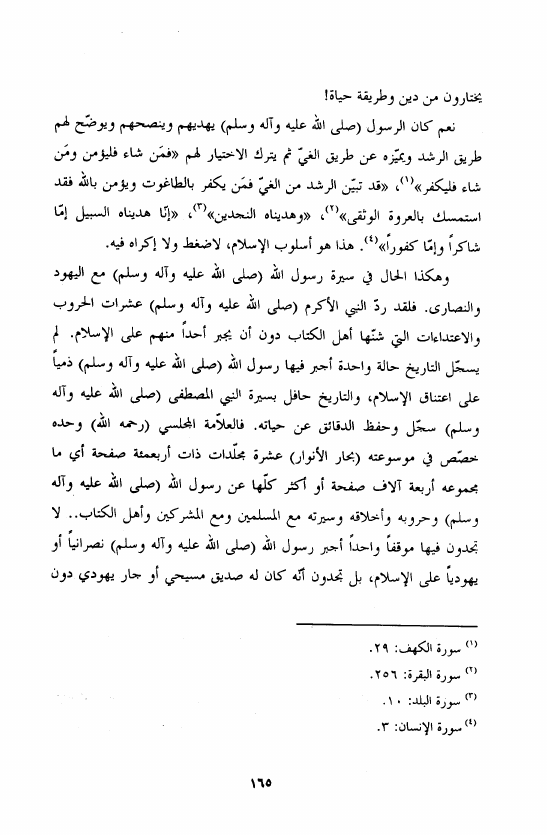 يختارون من دين وطريقة حياة!
نعم كان الرسول (صلى الله عليه وآله وسلم) يهديهم وينصحهم ويوضّح لهم
طريق الرشد ويميّزه عن طريق الغيّ ثم يترك الاختيار لهم «فمَن شاء فليؤمن ومَن
شاء فليكفر»(١)، «قد تبيّن الرشد من الغيّ فمَن يكفر بالطاغوت ويؤمن بالله فقد
استمسك بالعروة الوثقى»(٢)، «وهديناه النجدين»(٣)، «إنّا هديناه السبيل إمّا
شاكراً وإمّا كفوراً»(٤). هذا هو أسلوب الإسلام، لاضغط ولا إكراه فيه.
وهكذا الحال في سيرة رسول الله (صلى الله عليه وآله وسلم) مع اليهود
والنصارى. فلقد ردّ النبي الأكرم (صلى الله عليه وآله وسلم) عشرات الحروب
والاعتداءات التي شنّها أهل الكتاب دون أن يجبر أحداً منهم على الإسلام. لم
يسجّل التاريخ حالة واحدة أجبر فيها رسول الله (صلى الله عليه وآله وسلم) ذمياً
على اعتناق الإسلام، والتاريخ حافل بسيرة النبي المصطفى (صلى الله عليه وآله
وسلم) سجّل وحفظ الدقائق عن حياته. فالعلاّمة المجلسي (رحمه الله) وحده
خصّص في موسوعته (بحار الأنوار) عشرة مجلّدات ذات أربعمئة صفحة أي ما
مجموعه أربعة آلاف صفحة أو أكثر كلّها عن رسول الله (صلى الله عليه وآله
وسلم) وحروبه وأخلاقه وسيرته مع المسلمين ومع المشركين وأهل الكتاب.. لا
تجدون فيها موقفاً واحداً أجبر رسول الله (صلى الله عليه وآله وسلم) نصرانياً أو
يهودياً على الإسلام، بل تجدون أنّه كان له صديق مسيحي أو جار يهودي دون
(١) سورة الكهف: ٢٩.
(٢) سورة البقرة: ٢٥٦.
(٣) سورة البلد: ١٠.
(٤) سورة الإنسان: ٣.
١٦٥